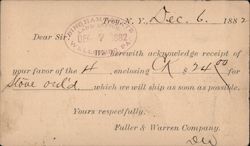 Troy, N. Y. Dec. 6. 1882
Dear Sir:
DEC 7 1882
PA
We herewith acknowledge receipt of
your favor of the 4 enclosing CK $ 24 00 for
Stove ord'd which we will ship as soon as possible.
Yours respectfully,
Fuller & Warren Company.